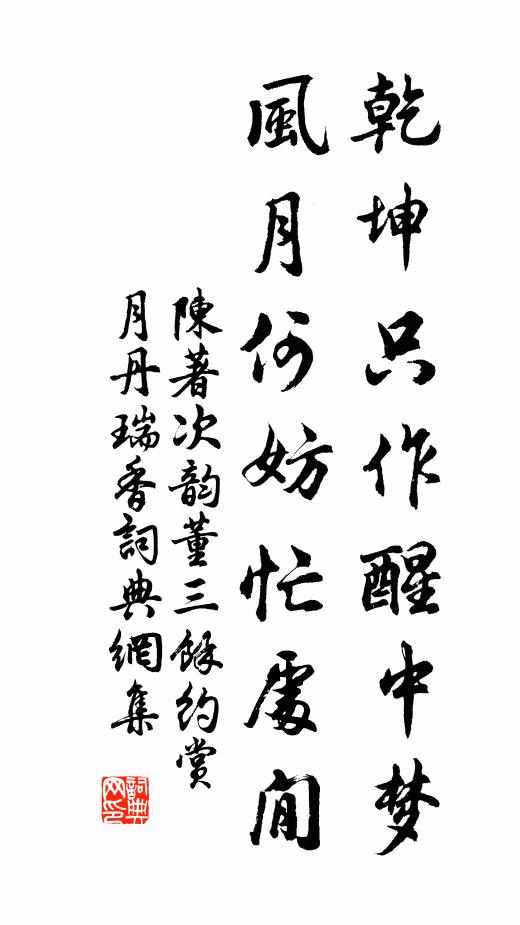 乾坤只作醒中梦
風月何妨忙處閒
陳著次韵董三餘約賞
月丹瑞香詞典網集
詞典
网印